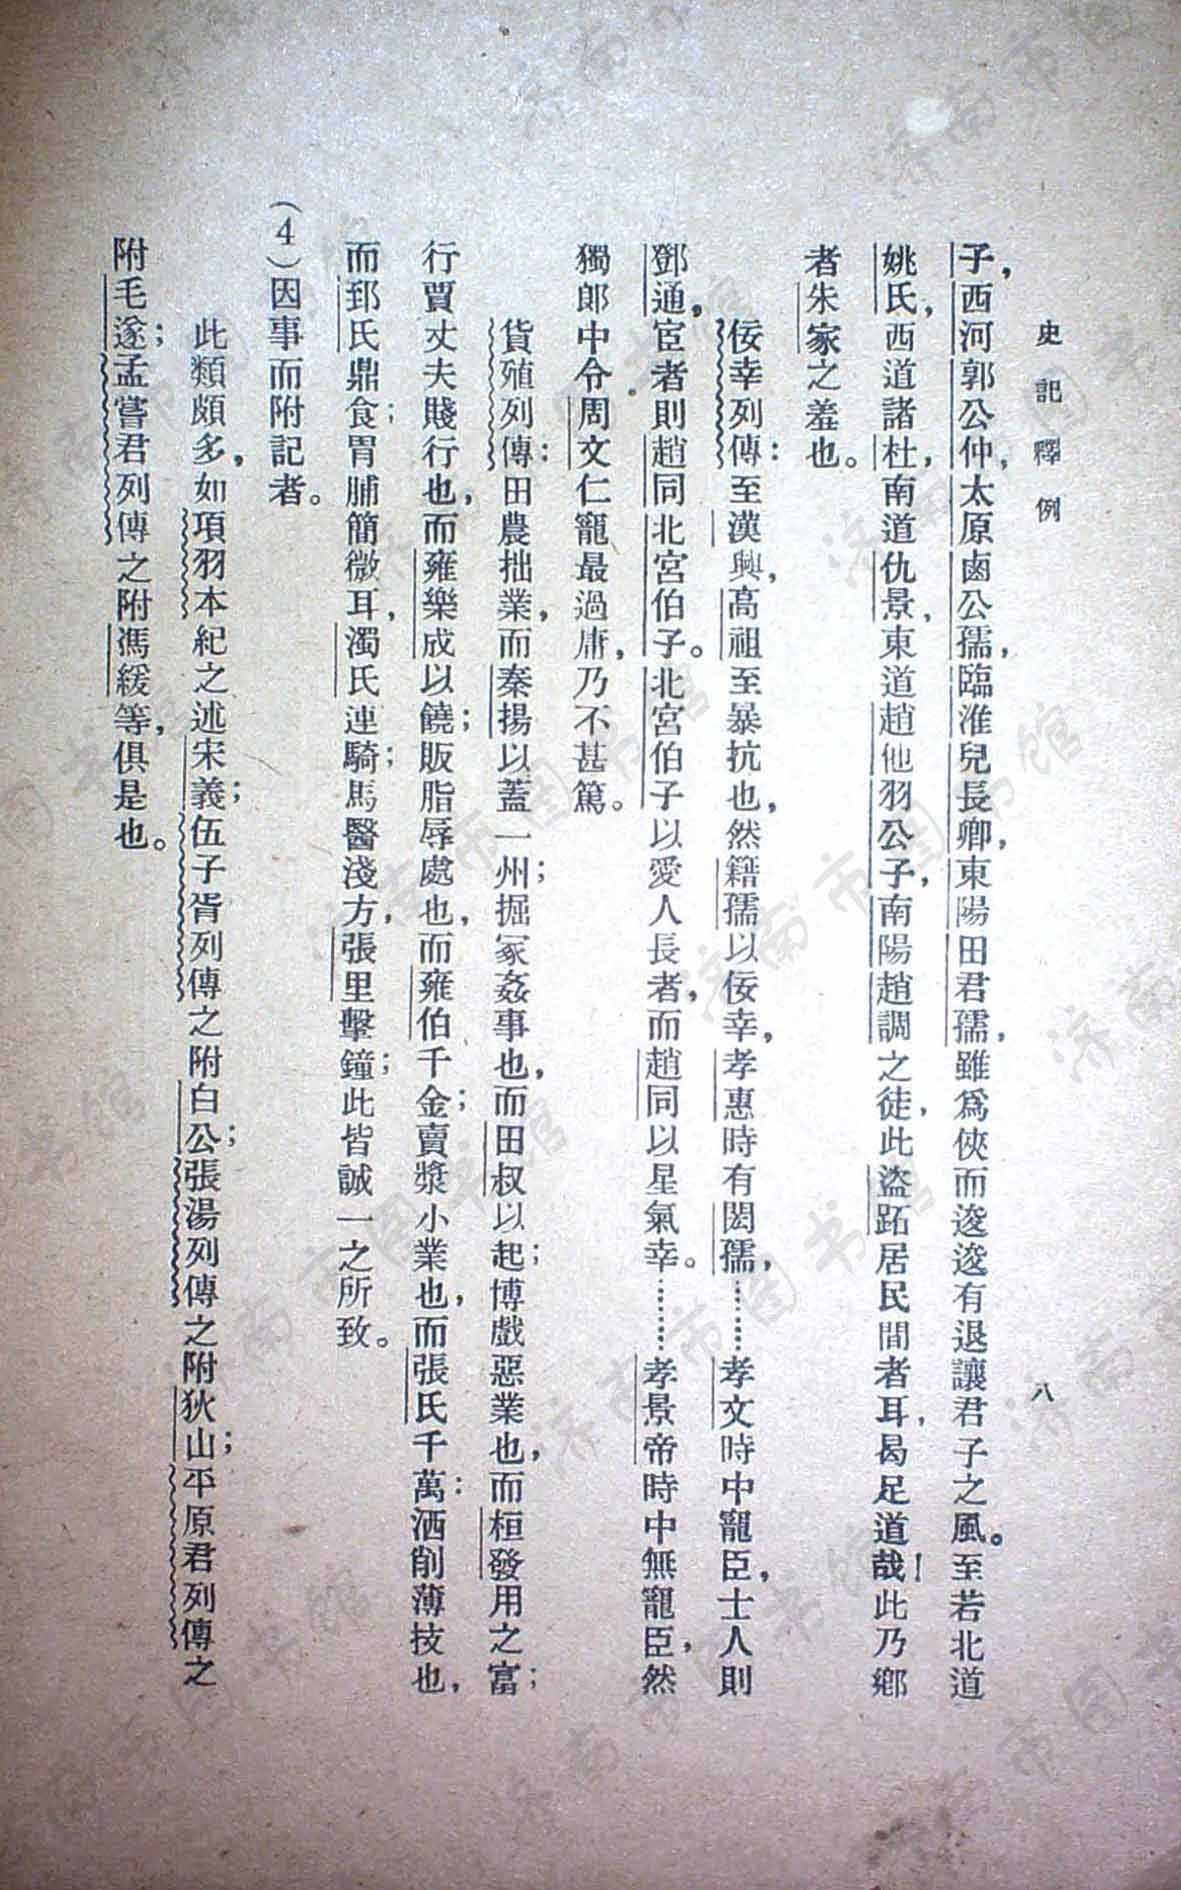 史記釋例
八
子，西河郭公仲，太原鹵公孺，臨淮兒長卿，東陽田君孺，雖爲俠而逡逡有退讓君子之風。至若北道
姚氏，西道諸杜，南道仇景，東道趙他羽公子，南陽趙調之徒，此盜跖居民間者耳，曷足道哉！此乃鄉
者朱家之羞也。
佞幸列傳：至漢興，高祖至暴抗也，然籍孺以佞幸，孝惠時有閎孺，………孝文時中寵臣，士人則
鄧通，宦者則趙同北宮伯子。北宮伯子以愛人長者，而趙同以星氣幸。………孝景帝時中無寵臣，然
獨郎中令周文仁寵最過庸，乃不甚篤。
貨殖列傳：田農拙業，而秦揚以蓋一州；掘冢姦事也，而田叔以起；博戲惡業也，而桓發用之富；
行賈丈夫賤行也，而雍樂成以饒；販脂辱處也，而雍伯千金；賣漿小業也，而張氏千萬：洒削薄技也，
而郅氏鼎食；胃脯簡微耳，濁氏連騎；馬醫淺方，張里擊鐘；此皆誠一之所致。
（4）因事而附記者。
此類頗多，如項羽本紀之述宋義；伍子胥列傳之附白公；張湯列傳之附狄山；平原君列傳之
附毛遂；孟嘗君列傳之附馮緩等，俱是也。
济南市图书馆